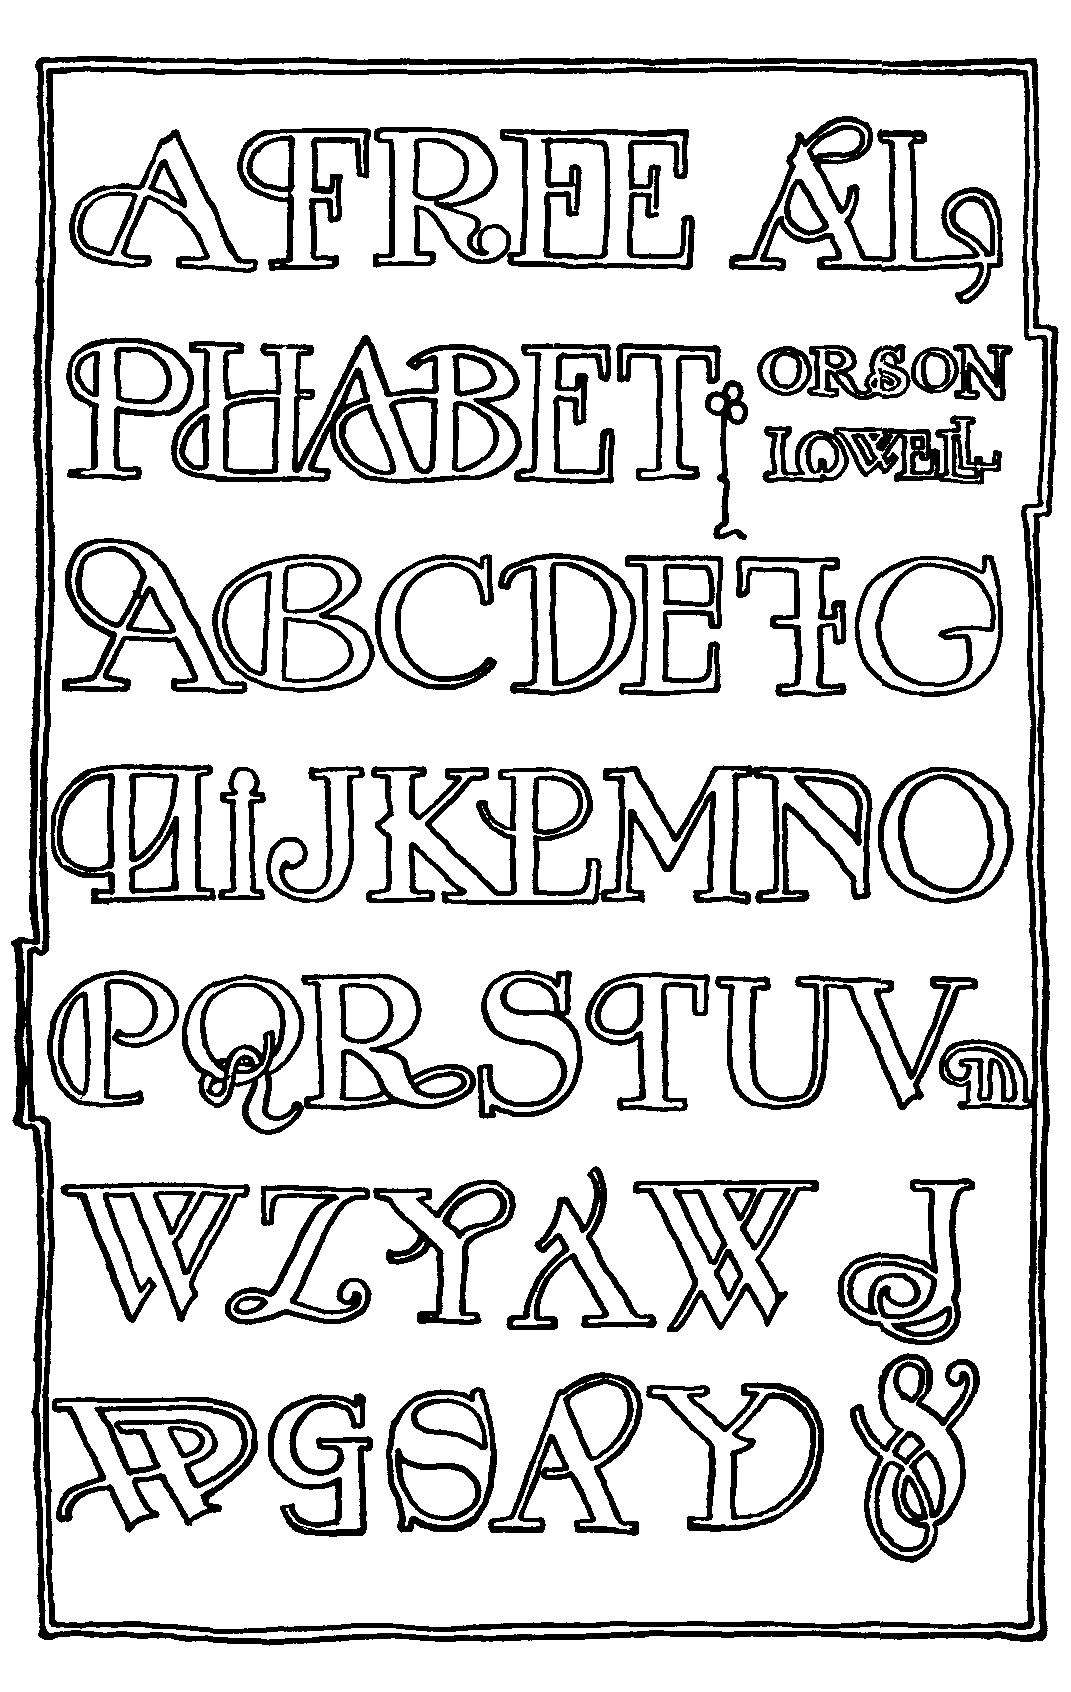 A FREE AL
PHABET ORSON
LOWELL
ABCDEFG
HIJKLMNO
PQRSTUV
WZYXWJ
GSAY&